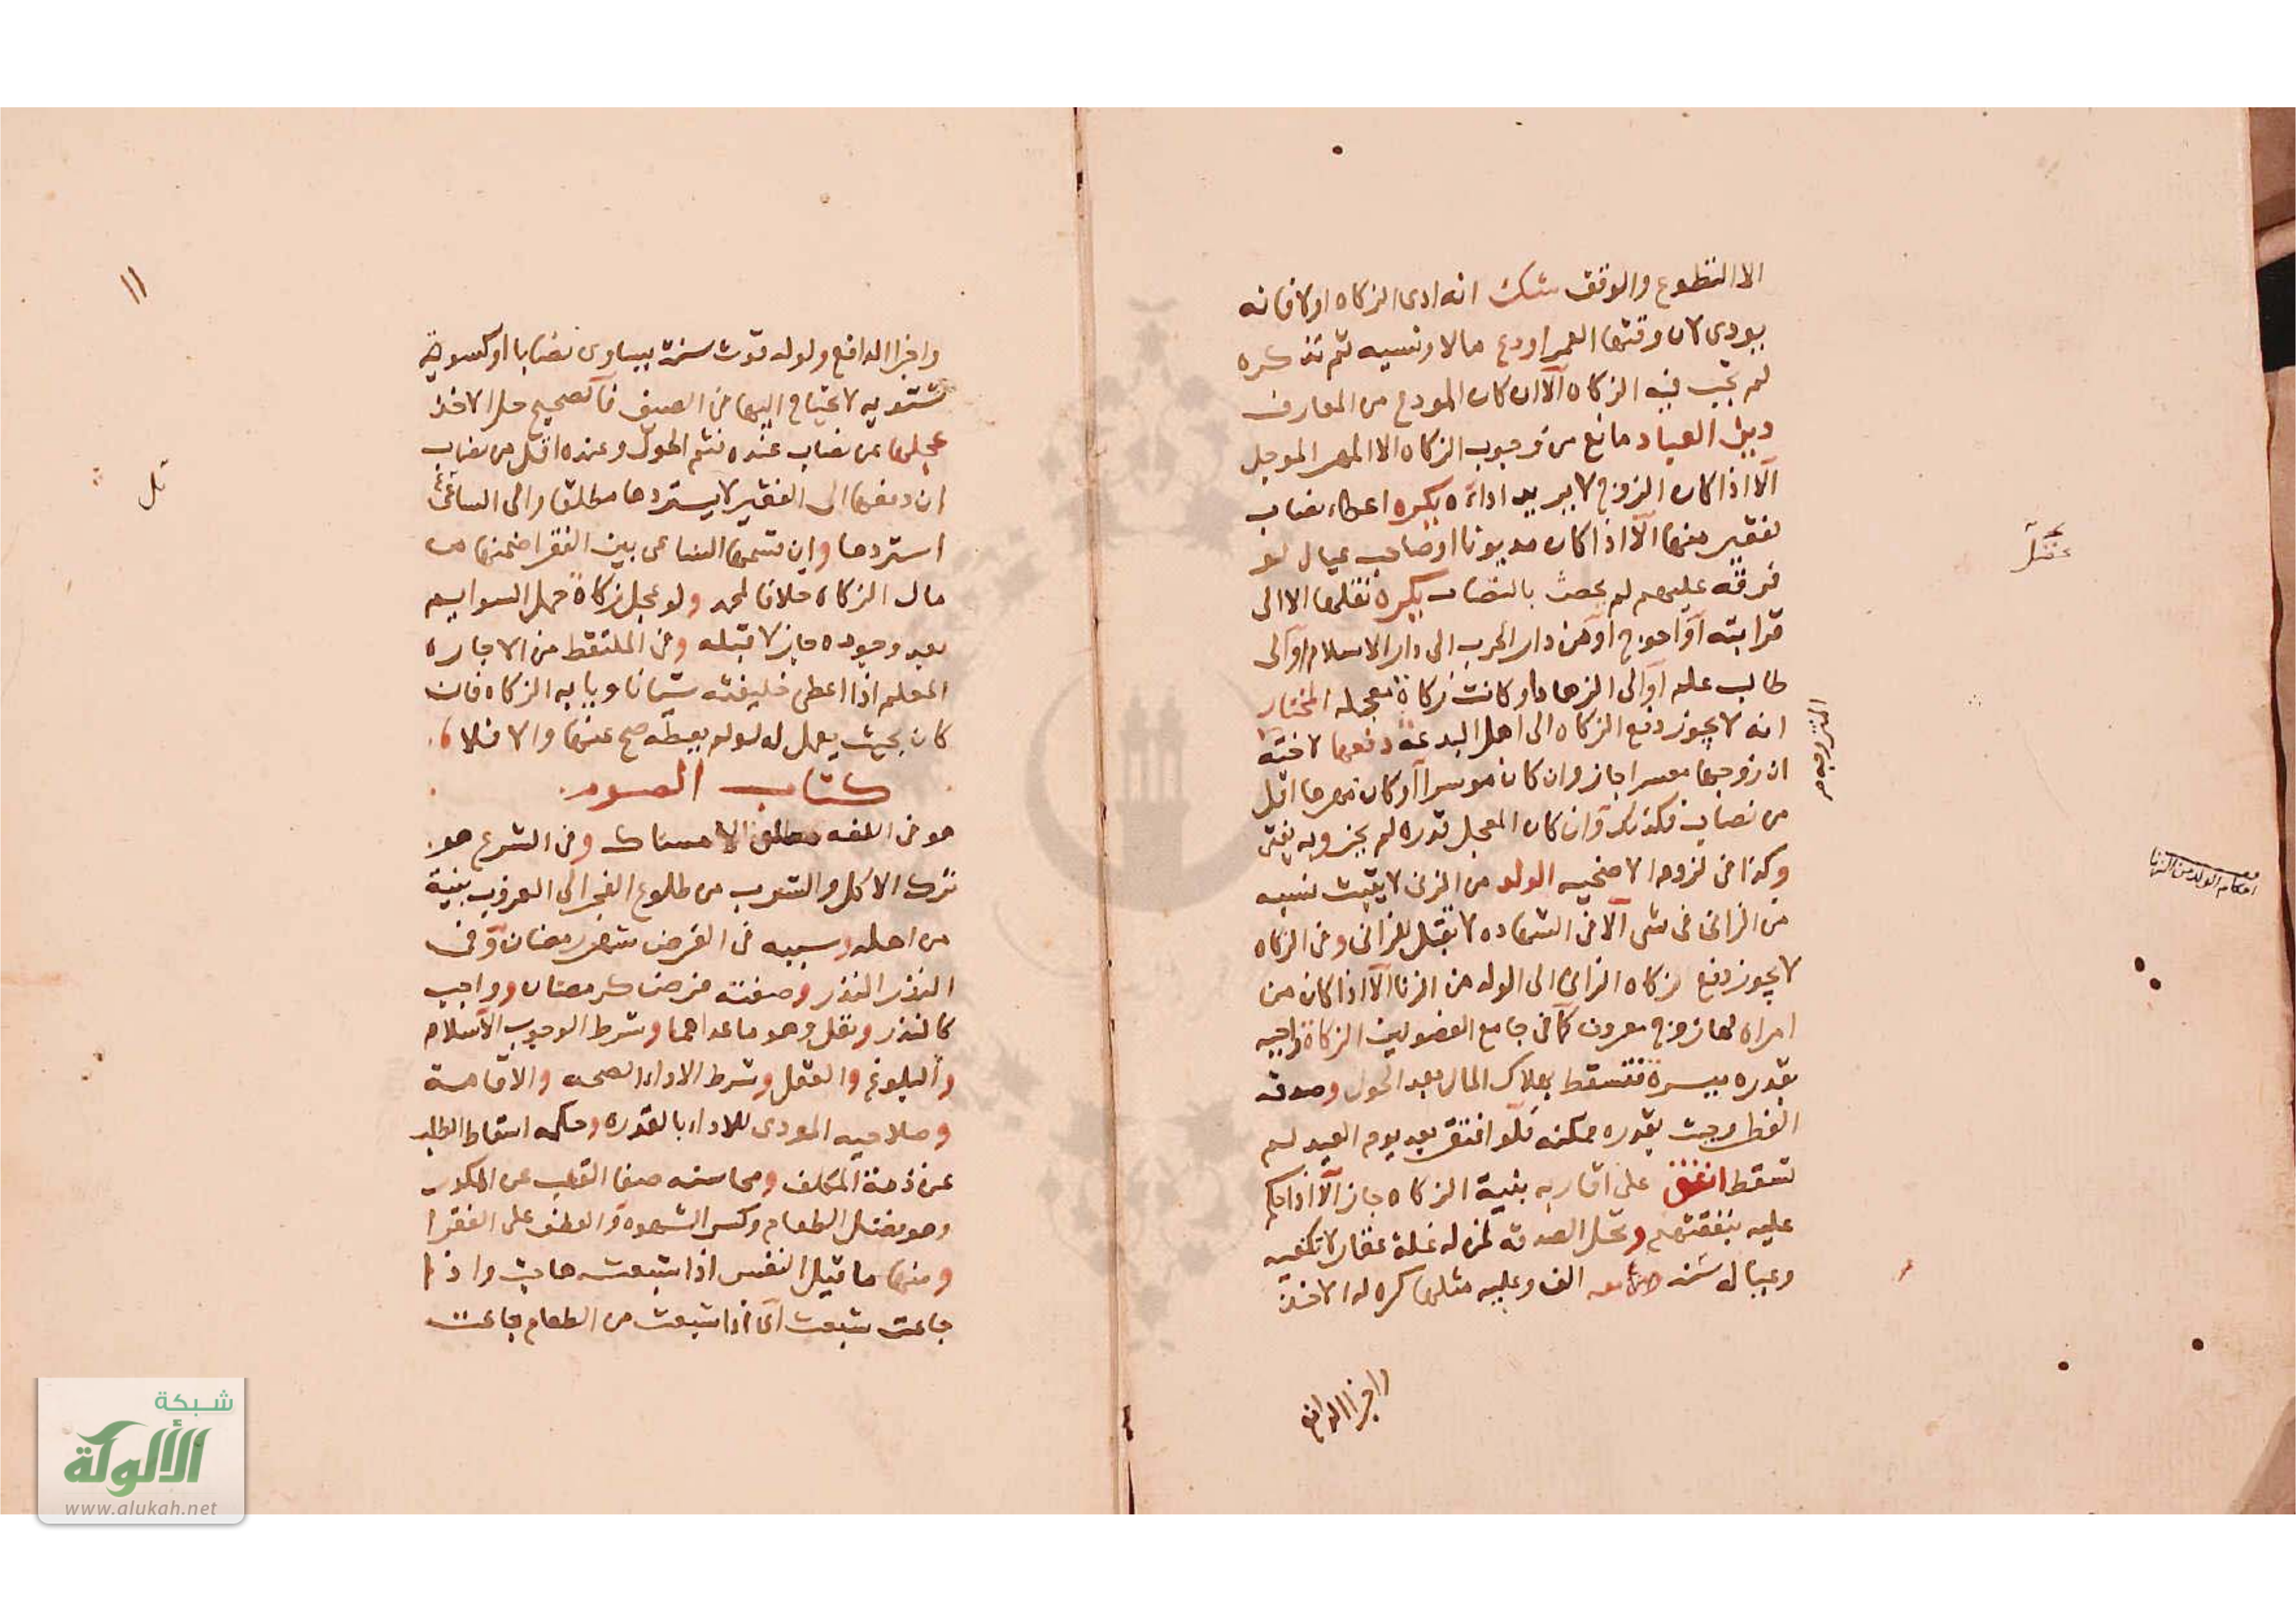 الا التطوع والوقف شك انه ادى الزكاه اولا فانه
يودى لان وقتها العمر اودع مالا ونسيه ثم تذكره
لم تجب فيه الزكاه الا ان كان المودع من المعارف
دين العباد مانع من وجوب الزكاه الا المهر الموجل
الا اذا كان الزوج لا يريد اداءه يكره اعطاء نصاب
لفقير منها الا اذا كان مديونا او صاحب عيال لو
فرقه عليهم لم يخص نصاب يكره نقلها الا الى
قرابته او احوج او من دار الحرب الى دار الاسلام او الى
طالب علم او الى الزهاد او كانت زكاة معجله المختار
انه لا يجوز دفع الزكاه الى اهل البدعة دفعها لاخته
المتزوجه
ان زوجها معسرا جاز وان كان موسرا او كان مهرها اقل
من نصاب فكذلك وان كان المعجل قدره لم يجز وبه يفتى
وكذا فى لزوم الاضحيه الولد من الزنى لا يثبت نسبه
احكام الولد من الزنا
من الزانى فى شى الا فى الشهاده لا تقبل للزانى وفى الزكاه
لا يجوز دفع زكاه الزانى الى الولد من الزنا الا اذا كان من
امراه لها زوج معروف كما فى جامع الفصولين الزكاة واجبه
بقدره ميسرة فتسقط بهلاك المال بعد الحول وصدقه
الفطر وجبت بقدره ممكنه فلو افتقر بعد يوم العيد لم
تسقط انفق على اقاربه بنية الزكاه جاز الا اذا حكم
عليه بنفقتهم وتحل الصدقه لمن له غلة عقار لا تكفيه
وعياله سنه من معه الف وعليه مثلها كره له الاخذ
واجزا الدافع
١١
واجزا الدافع ولو له قوت سنة يساوى نصابا او كسوة
شتويه لا يحتاج اليها فى الصيف فالصحيح حل الاخذ
عجلها عن نصاب عنده فتم الحول وعنده اقل من نصاب
ان دفعها الى الفقير لا يستردها مطلقا والى الساعى
استردها وان قسمها الساعى بين الفقرا ضمنها من
مال الزكاه خلافا لمحمد ولو عجل زكاة حمل السوايم
بعد وجوده جاز لا قبله وفى الملتقط من الاجاره
المعلم اذا اعطى خليفته شيا ناويا به الزكاه فان
كان بحيث يعمل له لو لم يعطه صح عنها والا فلا
كتاب الصوم
هو فى اللغه مطلق الامساك وفى الشرع هو
ترك الاكل والشرب من طلوع الفجر الى الغروب بنية
من اهله وسببه فى الفرض شهر رمضان وفى
النذر النذر وصفته فرض كرمضان وواجب
كالنذر ونفل وهو ماعداهما وشرط الوجوب الاسلام
والبلوغ والعقل وشرط الاداء الصحه والاقامة
وصلاحيه المودى للاداء بالقدره وحكمه اسقاط الطلب
عن ذمة المكلف ومحاسنه صفا القلب عن المكدر
وهو فضل الطعام وكسر الشهوه والعطف على الفقرا
ومنها ما قيل النفس اذا شبعت هاجت واذا
جاعت شبعت اى اذا شبعت من الطعام جاعت
شبكة
الألوكة
www.alukah.net